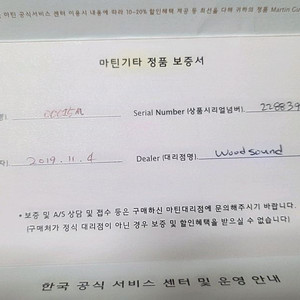 마틴 공식서비스 센터 이용시 내용에 따라 10~20% 할인혜택 제공 등 최선을 다해 귀하의 명품 Martin Gu
마틴기타 정품 보증서
00015M Serial Number (상품시리얼넘버) 228839
2019. 11. 4 Dealer (대리점명) Woodsound
* 보증 및 A/S 상담 및 접수 등은 구매하신 마틴대리점에 문의해주시기 바랍니다.
(구매처가 정식 대리점이 아닌 경우 보증 및 할인혜택을 받으실 수 없습니다)
한국 공식 서비스 센터 및 운영 안내